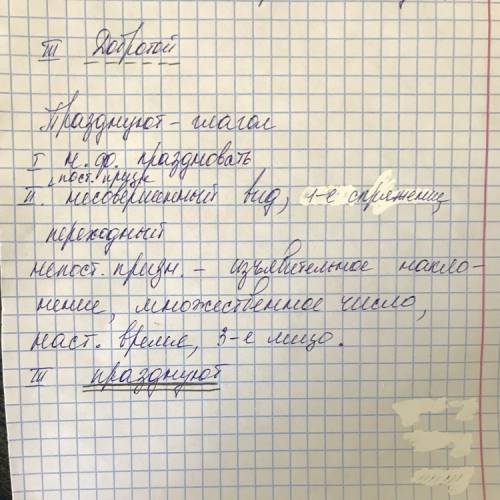 III Добротой
Празднуют – глагол
I н.ф. праздновать
пост. призн.
II. несовершенный вид, 1-е спряжение,
переходный
непост. призн. – изъявительное накло-
нение, множественное число,
наст. время, 3-е лицо.
III празднуют